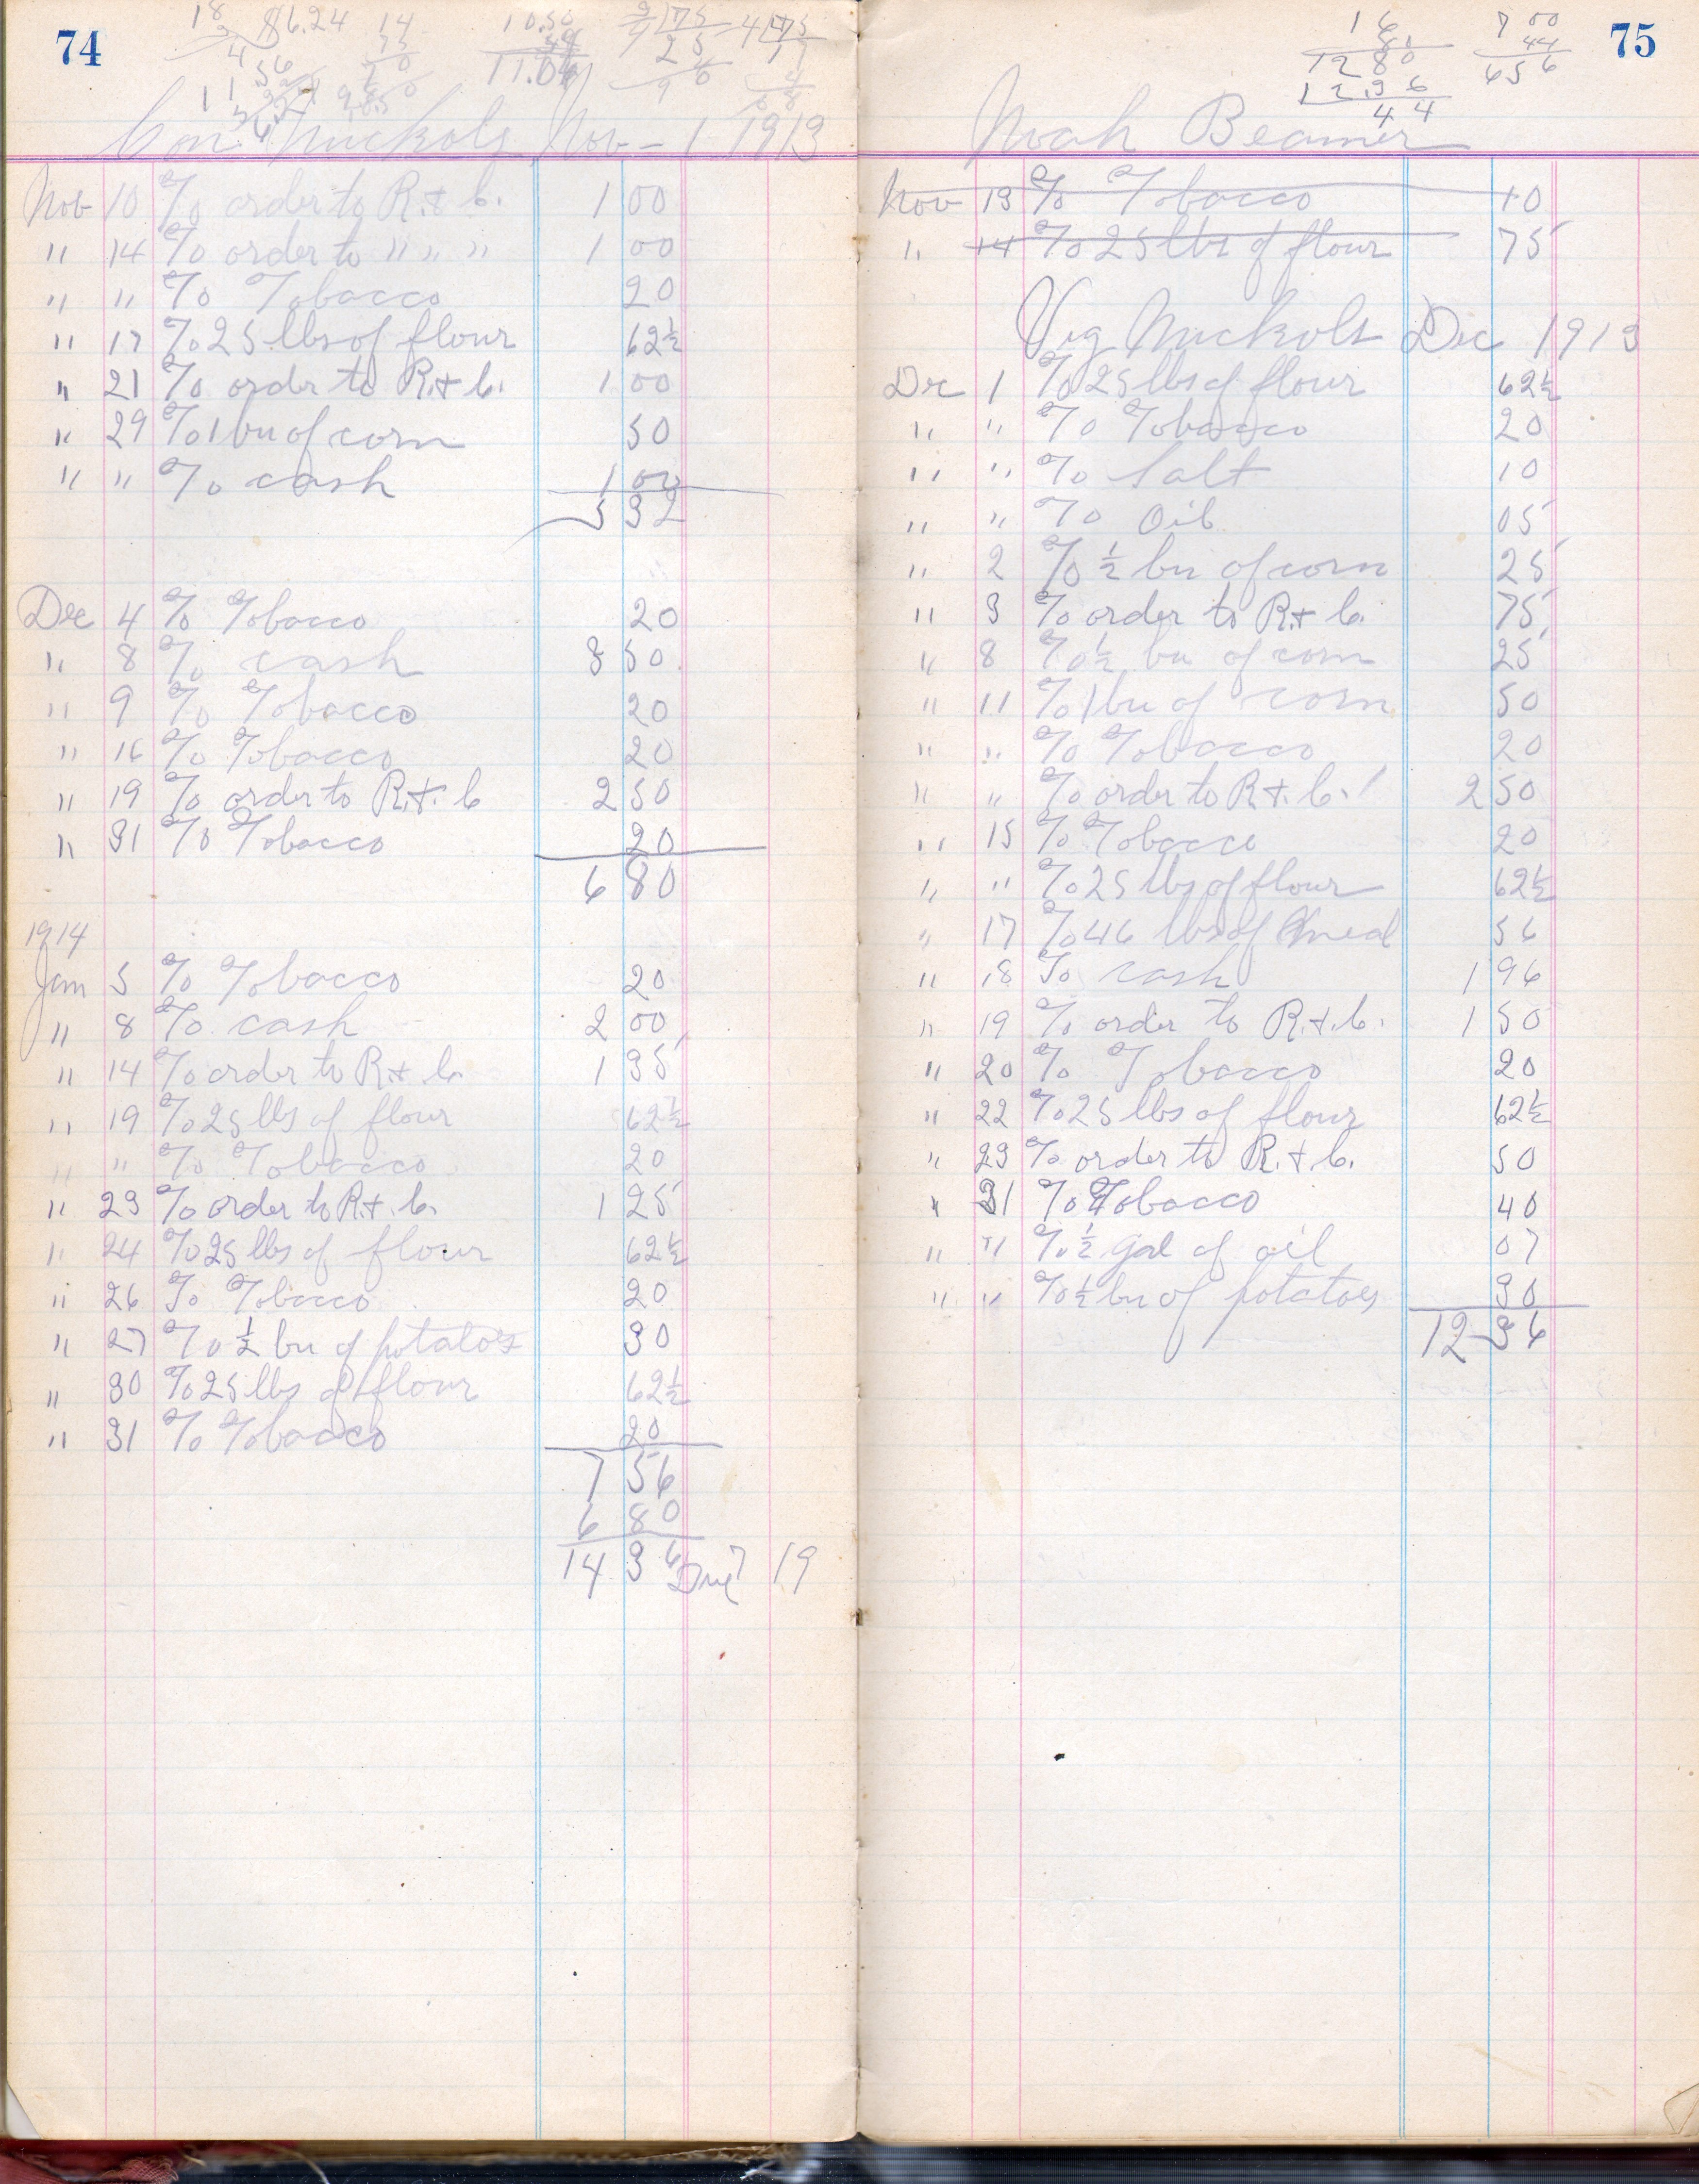 74
18 $6.24 14 10.50
11.04
Nuckols Nov - 1 1913
Nov 10 To order to R. + C. 1 00
" 14 To order to " " " 1 00
" " To Tobacco 20
" 17 To 25 lbs of flour 62½
" 21 To order to R. + C. 1 00
" 29 To 1 bu of corn 50
" " To cash 1 00
5 32
Dec 4 To Tobacco 20
" 8 To cash 3 50
" 9 To Tobacco 20
" 16 To Tobacco 20
" 19 To order to R. + C 2 50
" 31 To Tobacco 20
6 80
1914
Jan 5 To Tobacco 20
" 8 To cash 2 00
" 14 To order to R. + C. 1 35
" 19 To 25 lbs of flour 62½
" " To Tobacco 20
" 23 To order to R. + C. 1 25
" 24 To 25 lbs of flour 62½
" 26 To Tobacco 20
" 27 To ½ bu of potatoes 30
" 30 To 25 lbs of flour 62½
" 31 To Tobacco 20
7 56
6 80
14 36 Due 7 19
75
16
12 80
12 36
44
7 00
44
6 56
Noah Beamer
Nov 13 To Tobacco 10
" 14 To 25 lbs of flour 75
Vig Nuckols Dec 1913
Dec 1 To 25 lbs of flour 62½
" " To Tobacco 20
" " To Salt 10
" " To Oil 05
" 2 To ½ bu of corn 25
" 3 To order to R. + C. 75
" 8 To ½ bu of corn 25
" 11 To 1 bu of corn 50
" " To Tobacco 20
" " To order to R. + C. 2 50
" 15 To Tobacco 20
" " To 25 lbs of flour 62½
" 17 To 46 lbs of meal 56
" 18 To cash 1 96
" 19 To order to R. + C. 1 50
" 20 To Tobacco 20
" 22 To 25 lbs of flour 62½
" 23 To order to R. + C. 50
" 31 To Tobacco 40
" " To ½ gal of oil 07
" " To ½ bu of potatoes 30
12 36